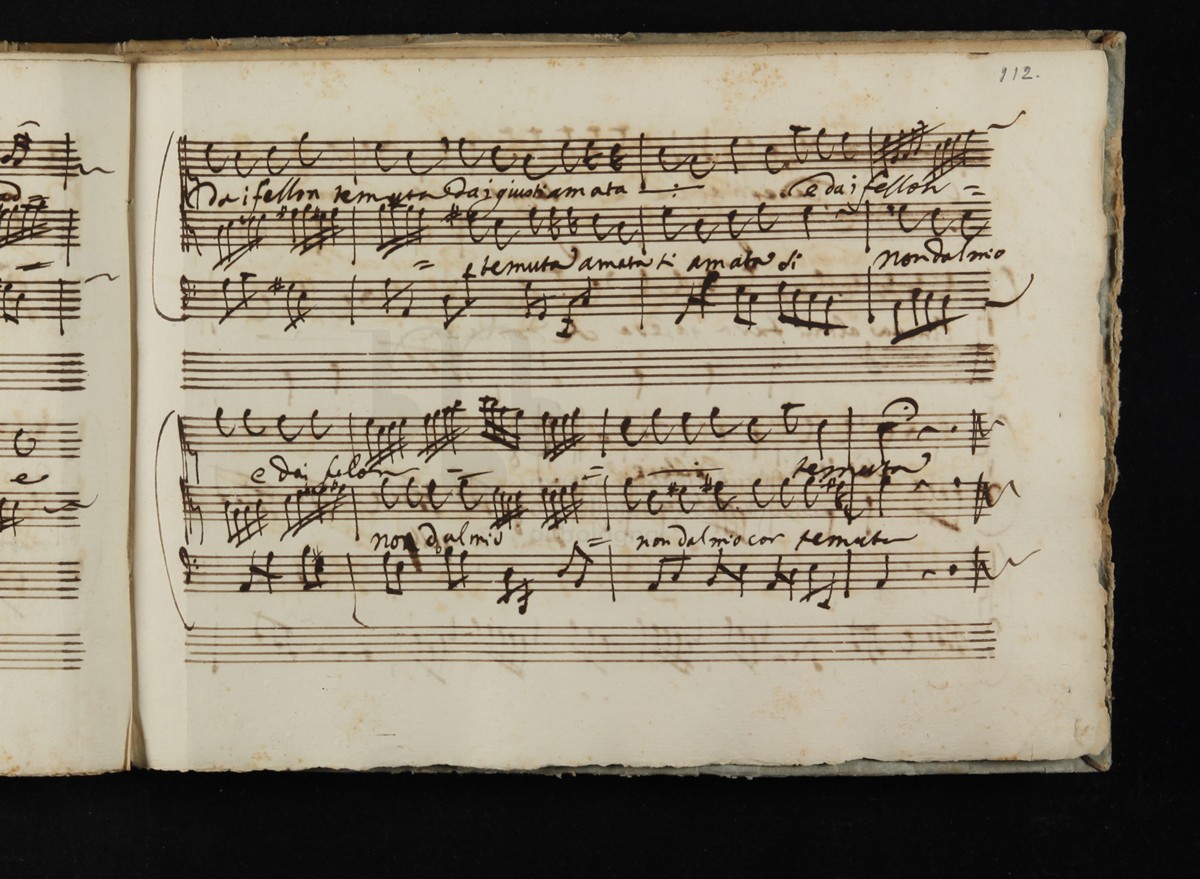 112.
Dai fellon temuta dai giusti amata e dai fellon =
= e temuta amata ti amata di non dal mio
e dai felon = =
non dal mio = non dal mio cor temuta
temuta
e